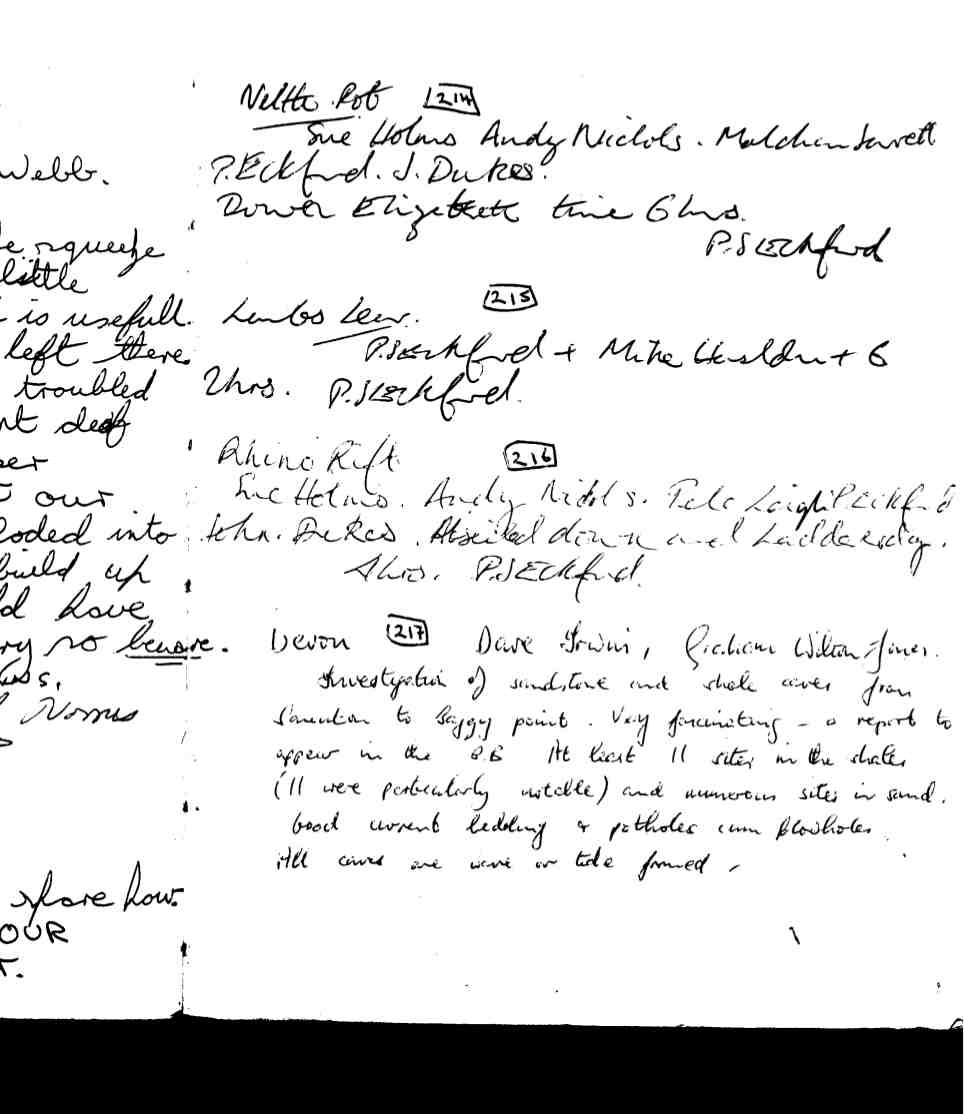 Webb.
squeeze
little
is usefull.
left there
troubled
deep
our
loded into
build up
have
no beware.
Norris
spare how.
OUR
Neltte Pot 214
Sue Holms Andy Nichols. Jarrett
P. Eckford. J. Dukes.
Dower time 6 hrs.
P.S Eckford
Lambs Leer. 215
P.S Eckford + Mike + 6
2hrs. P.S Eckford.
Rhino Rift 216
Sue Holms. Andy Nichols. Pete Leigh P Eckford
John. Dukes. Abseiled down and
4hrs. P.S Eckford.
Devon 217 Dave Irwin, Graham Wilton-Jones.
Investigation of sandstone and shale caves from
Saunton to Baggy point. Very fascinating - a report to
appear in the B.B At least 11 sites in the shales
(11 were particularly notable) and numerous sites in sand.
Good current bedding & potholes cum blowholes.
All caves are wave or tide formed